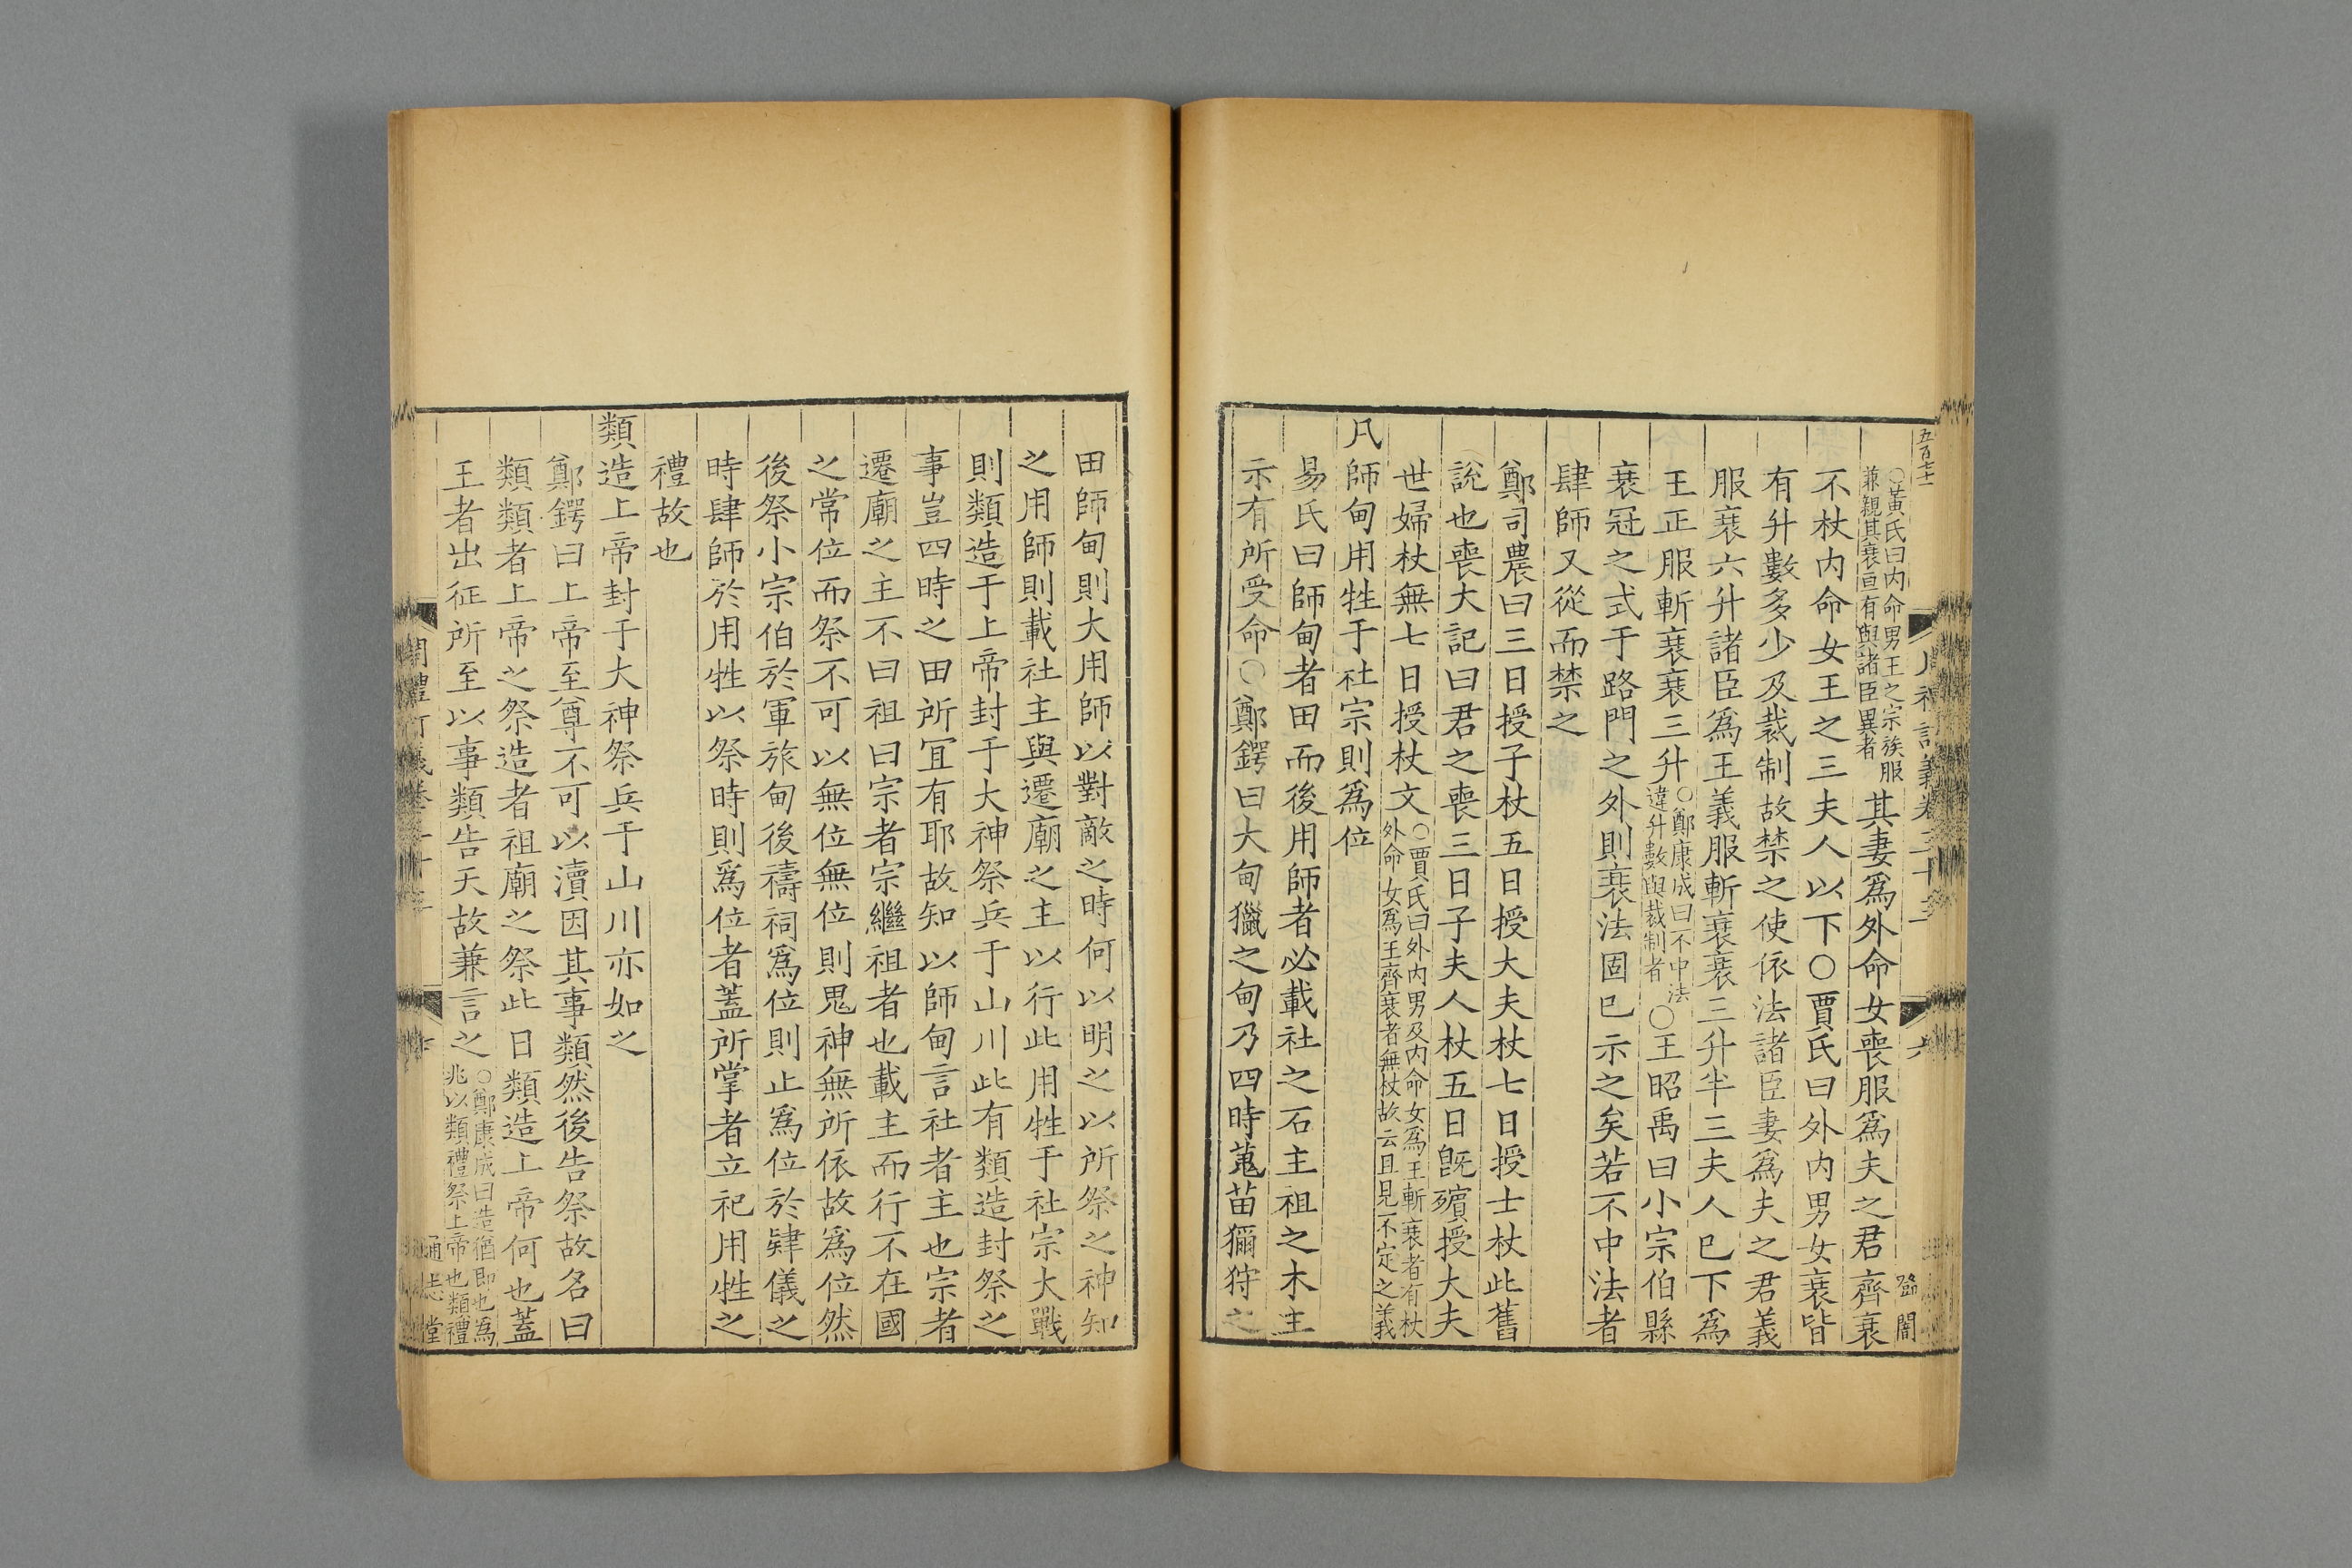 ○黃氏曰內命男王之宗族服
兼親其衰亘有與諸臣異者
其妻爲外命女喪服爲夫之君齊衰
不杖內命女王之三夫人以下○賈氏曰外內男女衰皆
有升數多少及裁制故禁之使依法諸臣妻爲夫之君義
服衰六升諸臣爲王義服斬衰衰三升半三夫人巳下爲
王正服斬衰衰三升
○鄭康成曰不中法
違升數與裁制者
○王昭禹曰小宗伯縣
衰冠之式于路門之外則衰法固巳示之矣若不中法者
肆師又從而禁之
鄭司農曰三日授子杖五日授大夫杖七日授士杖此舊
說也喪大記曰君之喪三日子夫人杖五日旣殯授大夫
世婦杖無七日授杖文
○賈氏曰外內男及內命女爲王斬衰者有杖
外命女爲王齊衰者無杖故云且見不定之義
凡師甸用牲于社宗則爲位
易氏曰師甸者田而後用師者必載社之石主祖之木主
示有所受命○鄭鍔曰大甸獵之甸乃四時蒐苗獮狩之
田師甸則大用師以對敵之時何以明之以所祭之神知
之用師則載社主與遷廟之主以行此用牲于社宗大戰
則類造于上帝封于大神祭兵于山川此有類造封祭之
事豈四時之田所宜有耶故知以師甸言社者主也宗者
遷廟之主不曰祖曰宗者宗繼祖者也載主而行不在國
之常位而祭不可以無位無位則鬼神無所依故爲位然
後祭小宗伯於軍旅甸後禱祠爲位則止爲位於肄儀之
時肆師於用牲以祭時則爲位者蓋所掌者立祀用牲之
禮故也
類造上帝封于大神祭兵于山川亦如之
鄭鍔曰上帝至尊不可以瀆因其事類然後告祭故名曰
類類者上帝之祭造者祖廟之祭此曰類造上帝何也蓋
王者出征所至以事類告天故兼言之
○鄭康成曰造猶卽也爲
兆以類禮祭上帝也類禮
通志堂